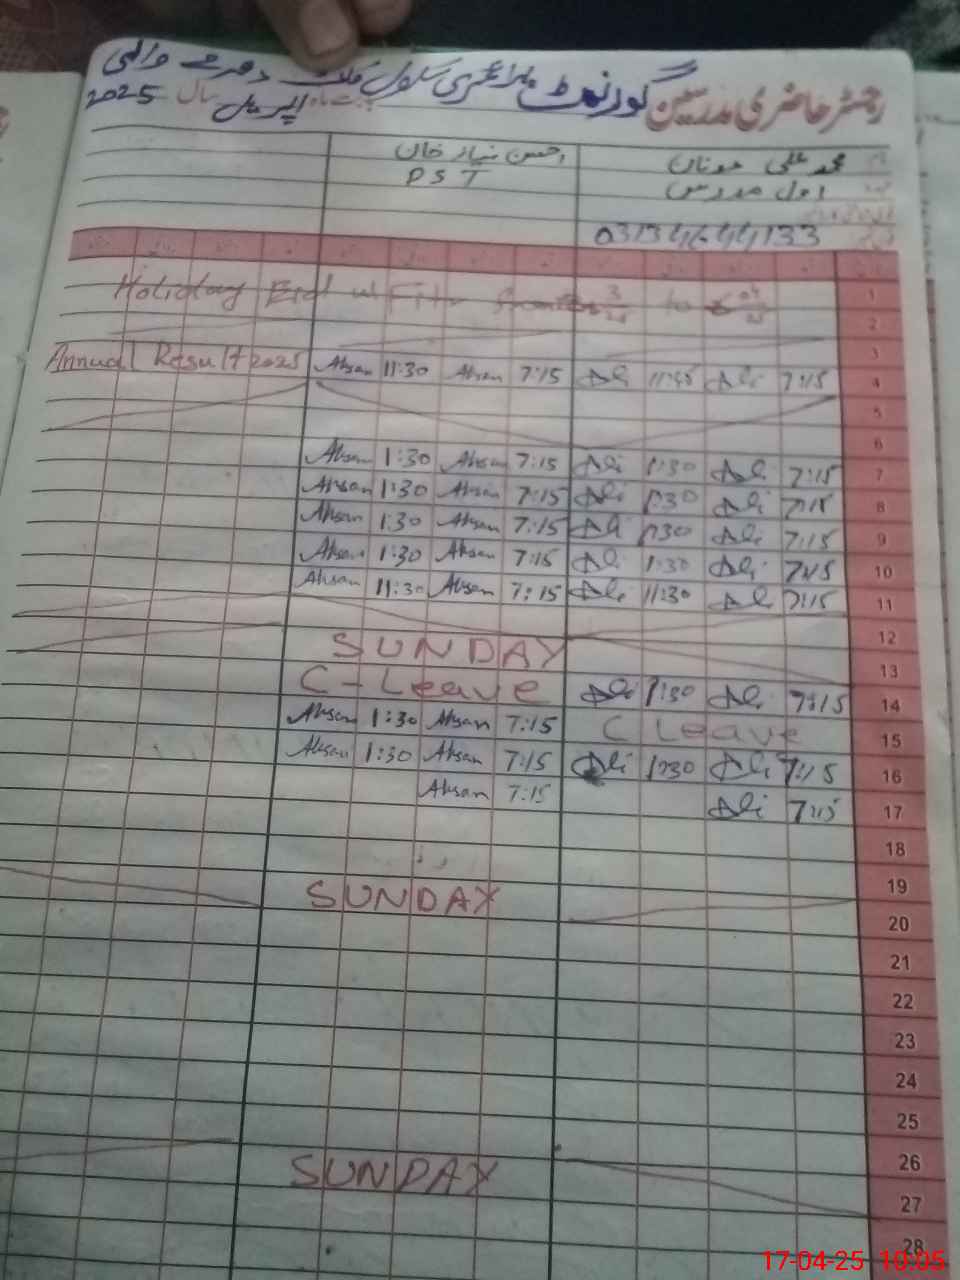 رجسٹر حاضری مدرسین گورنمنٹ پرائمری سکول والی
اپریل سال 2025
محمد علی احسن نیاز خان
اول مدرس PST
03134644133
1 Holiday Eid ul Fitr to
2
3
Annual Result 2025 Ahsan 11:30 Ahsan 7:15 Ali 11:45 Ali 7:15 4
5
6
Ahsan 1:30 Ahsan 7:15 Ali 1:30 Ali 7:15 7
Ahsan 1:30 Ahsan 7:15 Ali 1:30 Ali 7:15 8
Ahsan 1:30 Ahsan 7:15 Ali 1:30 Ali 7:15 9
Ahsan 1:30 Ahsan 7:15 Ali 1:30 Ali 7:15 10
Ahsan 11:30 Ahsan 7:15 Ali 11:30 Ali 7:15 11
12
SUNDAY 13
C-Leave Ali 1:30 Ali 7:15 14
Ahsan 1:30 Ahsan 7:15 C Leave 15
Ahsan 1:30 Ahsan 7:15 Ali 1:30 Ali 7:15 16
Ahsan 7:15 Ali 7:15 17
18
19
SUNDAY 20
21
22
23
24
25
26
SUNDAY 27
28
17-04-25 10:05